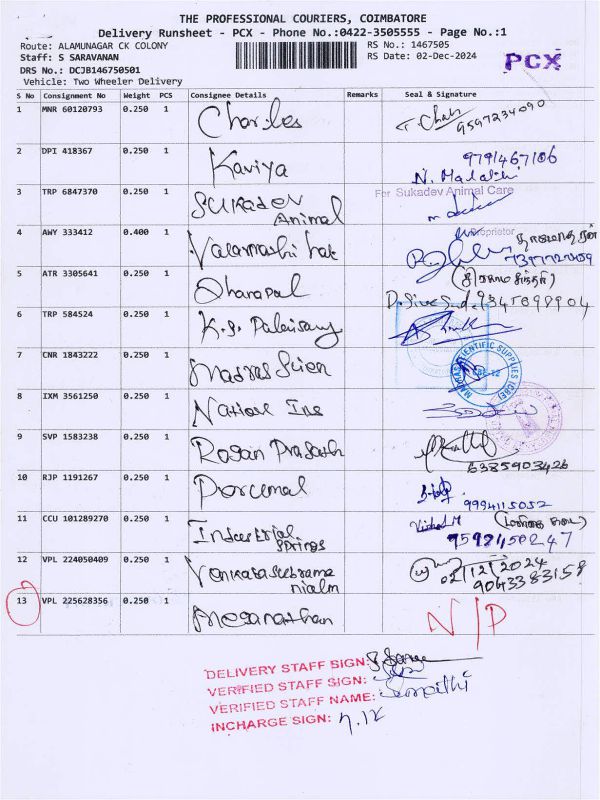 THE PROFESSIONAL COURIERS, COIMBATORE
Delivery Runsheet - PCX - Phone No.:0422-3505555 - Page No.:1
Route: ALAMUNAGAR CK COLONY RS No.: 1467505
Staff: S SARAVANAN RS Date: 02-Dec-2024
PCX
DRS No.: DCJB146750501
Vehicle: Two Wheeler Delivery
S No Consignment No Weight PCS Consignee Details Remarks Seal & Signature
1 MNR 60120793 0.250 1 Charles 9597234090
2 DPI 418367 0.250 1 Kaviya 9791467106
3 TRP 6847370 0.250 1 Sukadev Animal For Sukadev Animal Care
Proprietor
4 AWY 333412 0.400 1
5 ATR 3305641 0.250 1 Dharapal
6 TRP 584524 0.250 1 K.S. Palanisamy
7 CNR 1843222 0.250 1 Madras Scien
8 IXM 3561250 0.250 1 National Ins
9 SVP 1583238 0.250 1 Rogan Prasath 6385903426
10 RJP 1191267 0.250 1 Porcumal 9994115052
11 CCU 101289270 0.250 1 Industrial Springs Vishal M
12 VPL 224050409 0.250 1 02/12/2024
9043383158
13 VPL 225628356 0.250 1 Meganathan N/P
DELIVERY STAFF SIGN:
VERIFIED STAFF SIGN:
VERIFIED STAFF NAME:
INCHARGE SIGN: